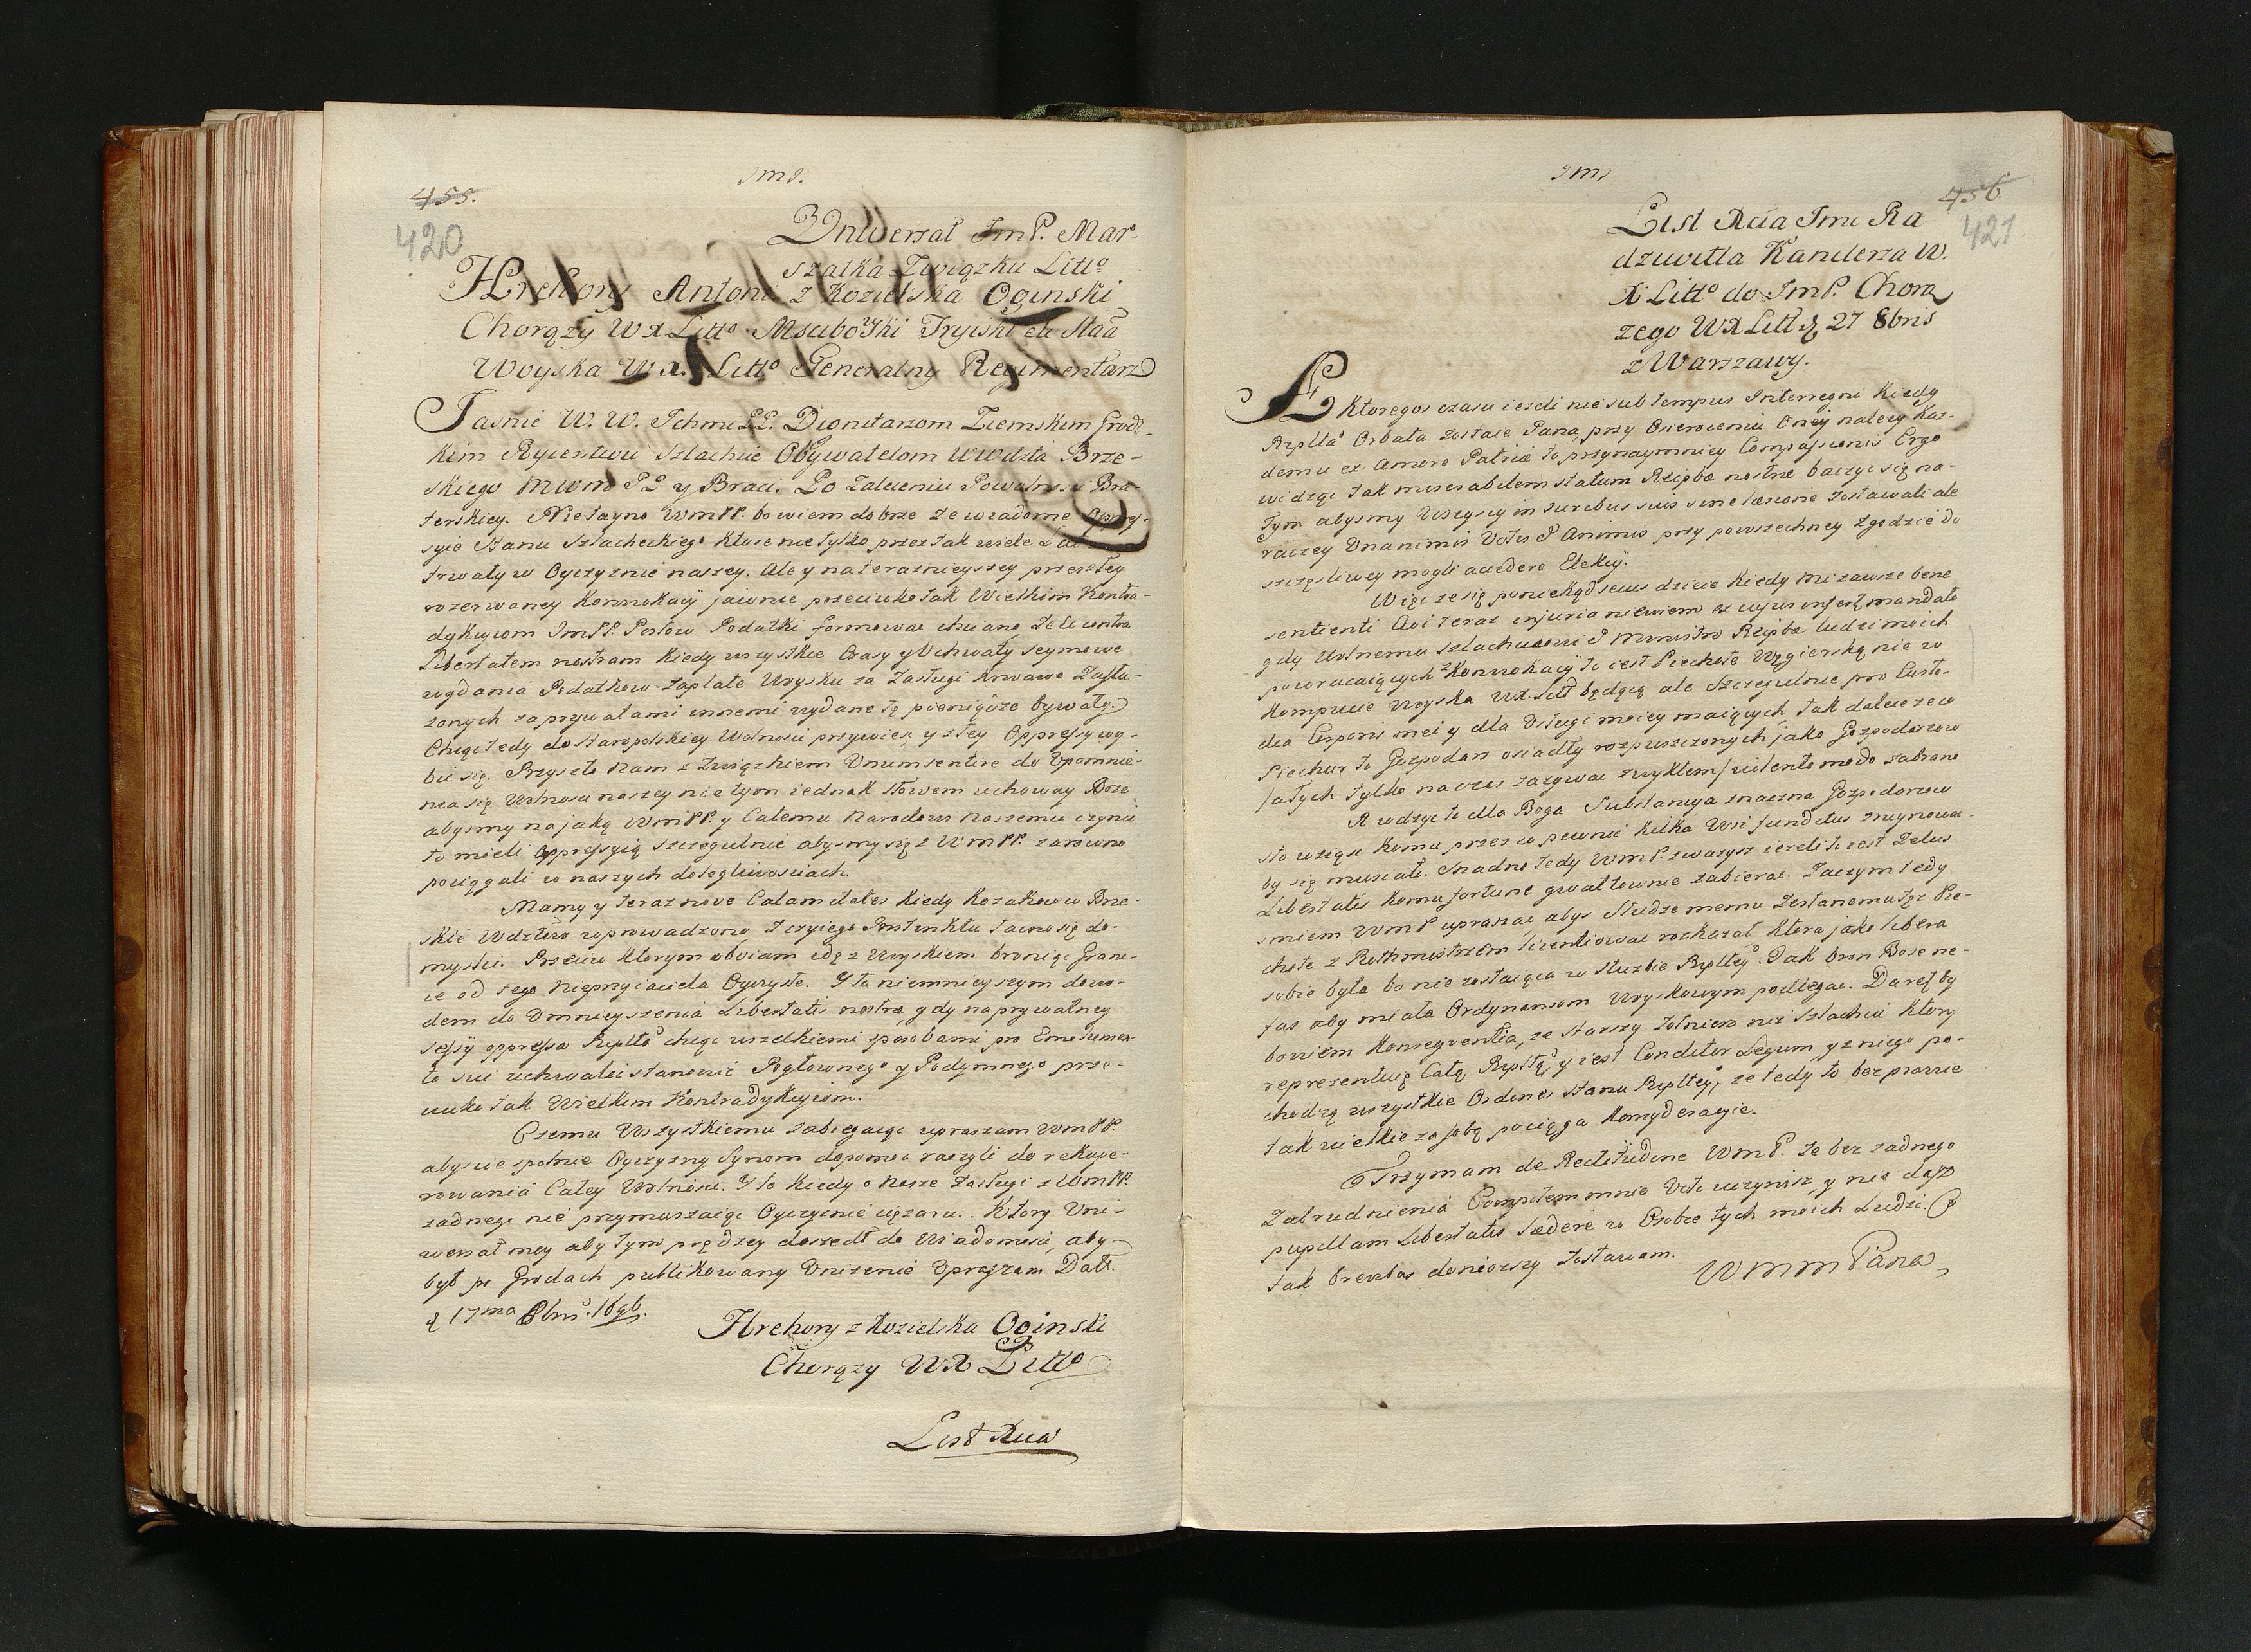 455.
420
Uniwersał JmP. Mar-
szałka Związku Litto
Hrehory Antoni z Kozielska Oginski
Chorązy WX Litto Mscibowski Tryiski etc Staa
Woyska WX. Litto Generalny Regimentarz
Jasnie W. W. Ichmc PP. Dignitarzom Ziemskim Grodz-
kim Rycerstwu Szlachcie Obywatelom Wwdztà Brze-
skiego mwm PP y Braci. Po Zaleceniu Powolnosci Bra-
terskiey. Nie tayno WmPP. bo wiem dobrze ze wiadome Oppres-
syie Stanu Szlacheckiego ktore nie tylko przez tak wiele Lat
trwały w Oyczyznie naszey. Ale y na teraznieyszey przeszłey
rozerwaney Konwokacij jawnie przeciwko tak Wielkim Kontra-
dykcyiom JmPP. Posłow Podatki formowac chciano Zeli contra
Libertatem nostram kiedy wszystkie Czasy y Uchwały seymowe
wydania Podatkow zapłate Woysku za Zasługi krwawe Zasłu-
zonych za prywatami innemi wydane tę pieniądze bywały.
Chcąc tedy do staropolskiey Wolnosci przywiesc y z tey Oppressyi wy-
bic się. Przyszło Nam z Związkiem Unum sentire do Upomnie-
nia się Wolnosci naszey nie tym iednak słowem uchoway Boze
abysmy na jaką WmPP. y Całemu Narodowi Naszemu czynic
to mieli oppressyią szczegulnie abysmy się z WmPP. zarowno
pociągali w naszych dolegliwosciach.
Mamy y teraz nove Calamitates kiedy Kozakow w Brze-
skie Wdztwo wprowadzono Z czyiego Instinktu łacno się do-
myslic. Przeciw ktorym obviam idę z Woyskiem broniąc Grani-
ce od tego nieprzyiaciela Oyczyste. Y to niemnieyszym dowo-
dem do Umnieyszenia Libertatis nostræ, gdy na prywatney
sessij oppressa Rpltà chcąc wszelkiemi sposobami pro Emolumen-
to sui uchwalic stanowic Pogłownego y Podymnego prze-
ciwko tak Wielkim Kontradykcyiom.
Czemu Wszystkiemu zabiegaiąc upraszam WmPP.
abyscie społnie Oyczyzny Synom dopomoc raczyli do rekupe-
rowania Całey Wolnosci. Y to kiedy o Nasze Zasługi z WmPP.
zadnego nie przymuszaiąc Oyczyznie cięzaru. Ktory Uni-
wersał moy aby tym prędzey doszedł do Wiadomosci, aby
był po Grodach publikowany Unizenie Upraszam Datt.
d 17ma 8bris. 1696.
Hrehory z Kozielska Oginski
Chorązy WX Litto
List Xcia
456
421
List Xcia Jmc Ra
dziwiłła Kanclerza W.
X Litto do JmP. Chorą
zego WX Litt d 27 8bris
z Warszawy.
A Ktoregos czasu iezeli nie sub tempus Interregni kiedy
Rpltà Orbata zostaie Pana, przy Osieroceniu Oney nalezy Kaz-
demu ex Amore Patriæ to przynaymniey Compassionis Ergo
widząc tak miserabilem statum Reipbæ nostræ baczyc się na-
tym abysmy Wszyscy in iuribus suis sine læsione zostawali ale
raczey Unanimis Votis & Animis przy powszechney zgodzie do
szczęsliwey mogli accedere Elekcij.
Więc ze się poniekąd secus dzieie kiedy mi zawsze bene
sentienti Civi teraz injuria niewiem ex cujus infertę mandato
gdy Wolnemu szlachcicowi & Ministro Reipbæ ludzi moich
powracaiących z Konwokacij to iest Piechote Węgierską nie w
kompucie Woyska WX. Litt będącą ale Szczegulnie pro Custo-
dia Corporis mei y dla Usługi moiey maiących, tak dalece ze co
Piechur to Gospodarz osiadły rozpuszczonych jako Gospodarzow
satych tylko na czas zazywac zwykłem, violento modo zabrano
A wdzyc to dla Boga Substancya znaczna Gospodarzow
sto wziąsc komu przez co pewnie kilka Wsi funditus zruynowa-
by się musiało. Snadno tedy WmP. zwazysz iezeli to iest Zelus
Libertatis komu fortune gwałtownie zabierac. Zaczym tedy
smiem WmP upraszac abys Słudze memu Zesłanemu tęz Pie-
chote z Rothmistrzem licentiowac rozkazał ktora jako libera
sobie była bo nie zostaiąca w Słuzbie Rpltey. Jak bron Boze ne-
fas aby miała Ordynansom Woyskowym podlegac. Dare by
bowiem Konsegventia, ze starszy Zołnierz niz Szlachcic ktory
reprezentuię Całą Rpltą, y iest Conditor Legum, y z niego po-
chodzą wszystkie Ordines Stanu Rpltey, ze tedy to bezprawie
tak wielkie za sobą pociąga Konsyderacyie.
Trzymam de Rectitudine WmP. ze bez zadnego
Zatrudnienia Compotem mnie Voti uczynisz, y nie dasz
pupillam Libertatis lædere w Osobie tych moich Ludzi. Co
tak breviter doniosszy Zostawam.
WmmPana